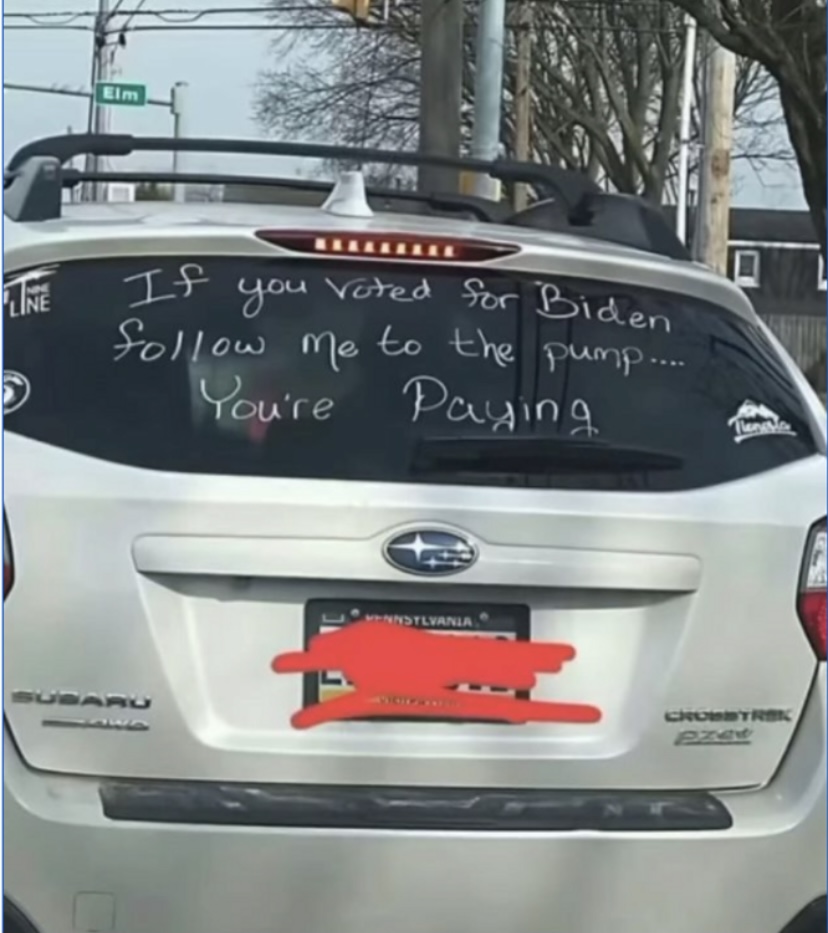 Elm
NINE
LINE
If you voted for Biden
follow me to the pump....
You're Paying
PENNSYLVANIA
SUBARU
AWD
CROSSTREK